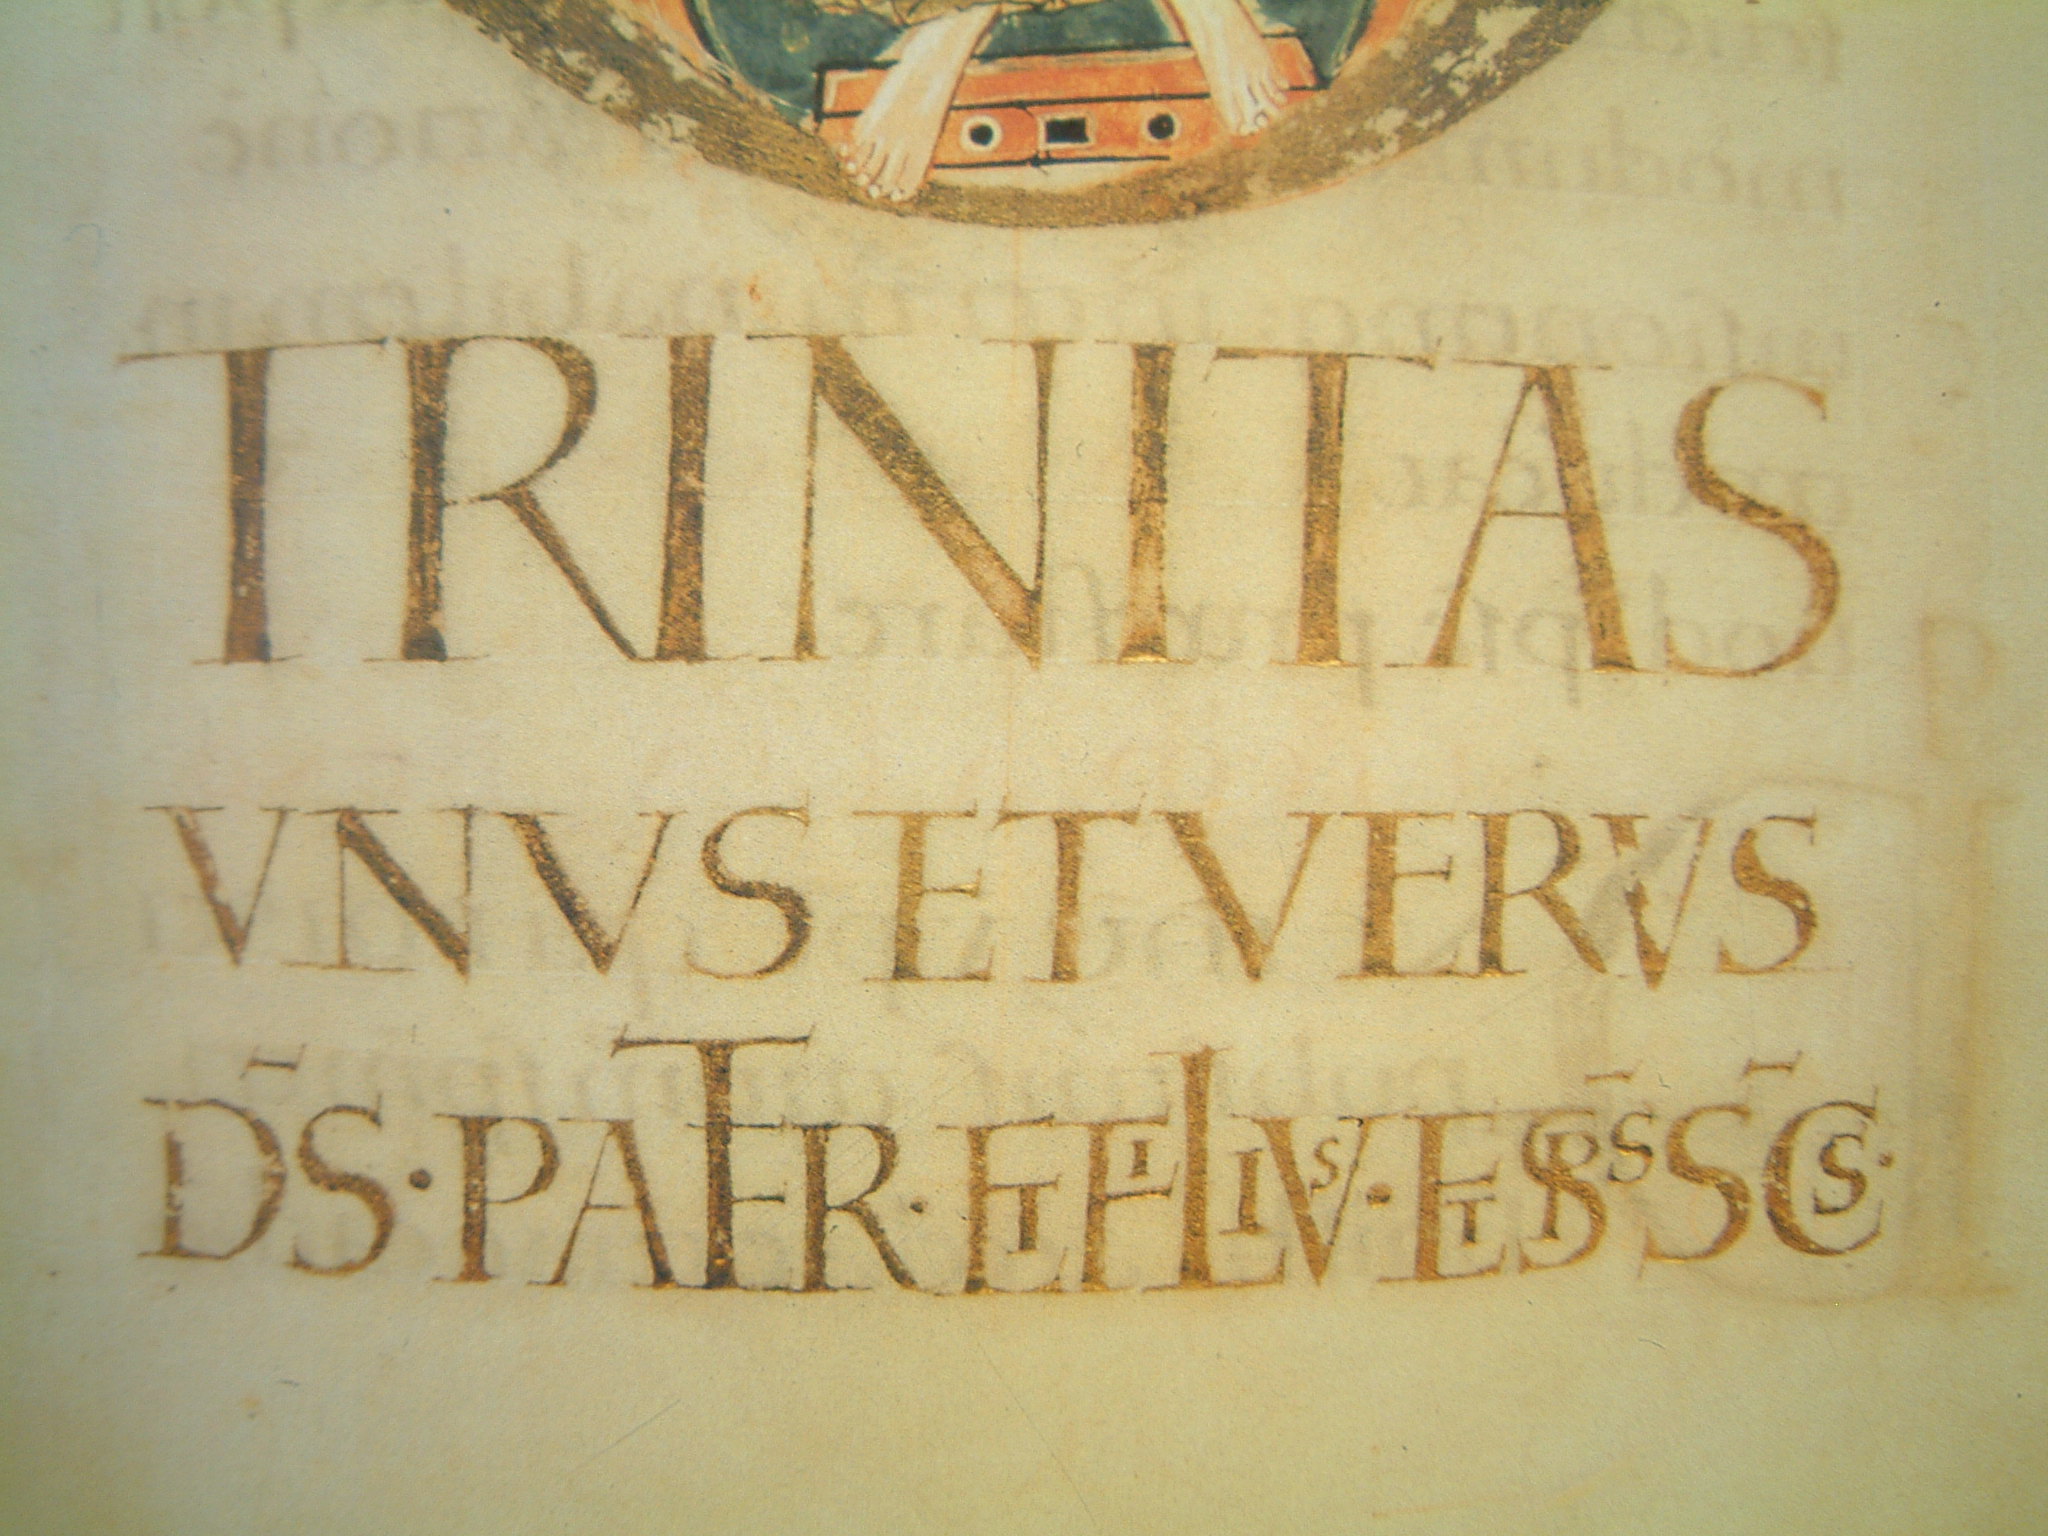 TRINITAS
VNVS ET VERVS
D̄S · PATER · ET FILIVS · ET SP̄S S̄CS ·